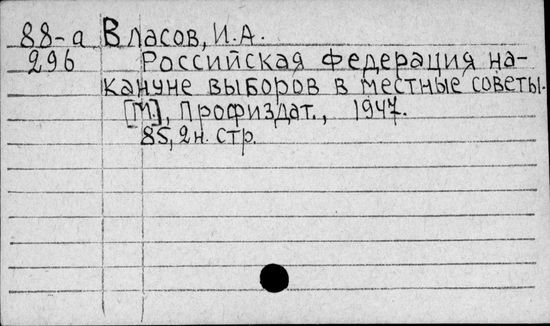 88-а Власов, И.А.
296 Российская Федерация на-
кануне выборов в местные советы.
[М.], Профиздат., 1947.
85, 2 н. стр.